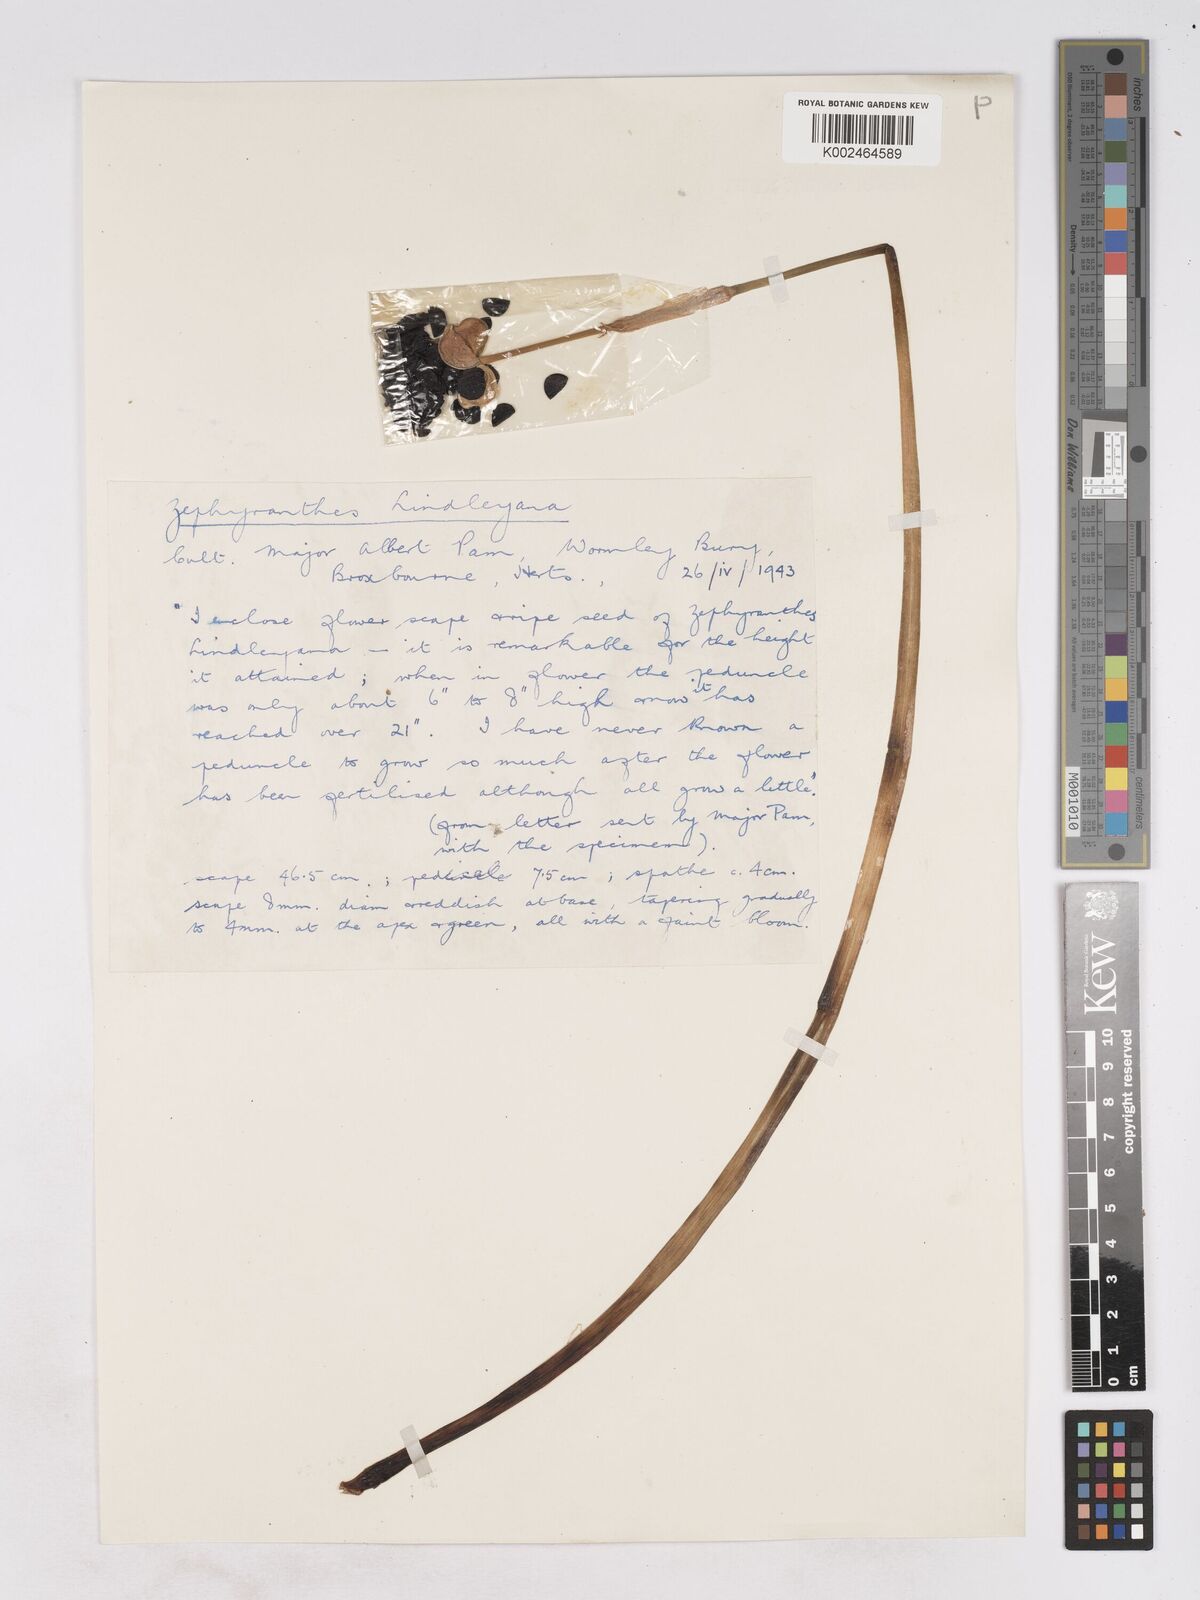 ROYAL BOTANIC GARDENS KEW
K002464589
P
Zephyranthes Lindleyana
Cult. Major Albert Pam, Wormley Bury,
Broxbourne, Herts., 26/iv/1943
"I enclose flower scape & ripe seed of Zephyranthes
Lindleyana — it is remarkable for the height
it attained; when in flower the peduncle
was only about 6" to 8" high & now it has
reached over 21". I have never known a
peduncle to grow so much after the flower
has been fertilised although all grow a little."
(from letter sent by Major Pam,
with the specimen).
scape 46.5 cm.; pedicele 7.5 cm; spathe c. 4 cm.
scape 8mm. diam & reddish at base, tapering gradually
to 4mm. at the apex & green, all with a faint bloom.
inches
Density
Don Williams
centimeters
M001010
Kew
Royal Botanic Gardens
copyright reserved
0 1 2 3 4 5 6 7 8 9 10
cm